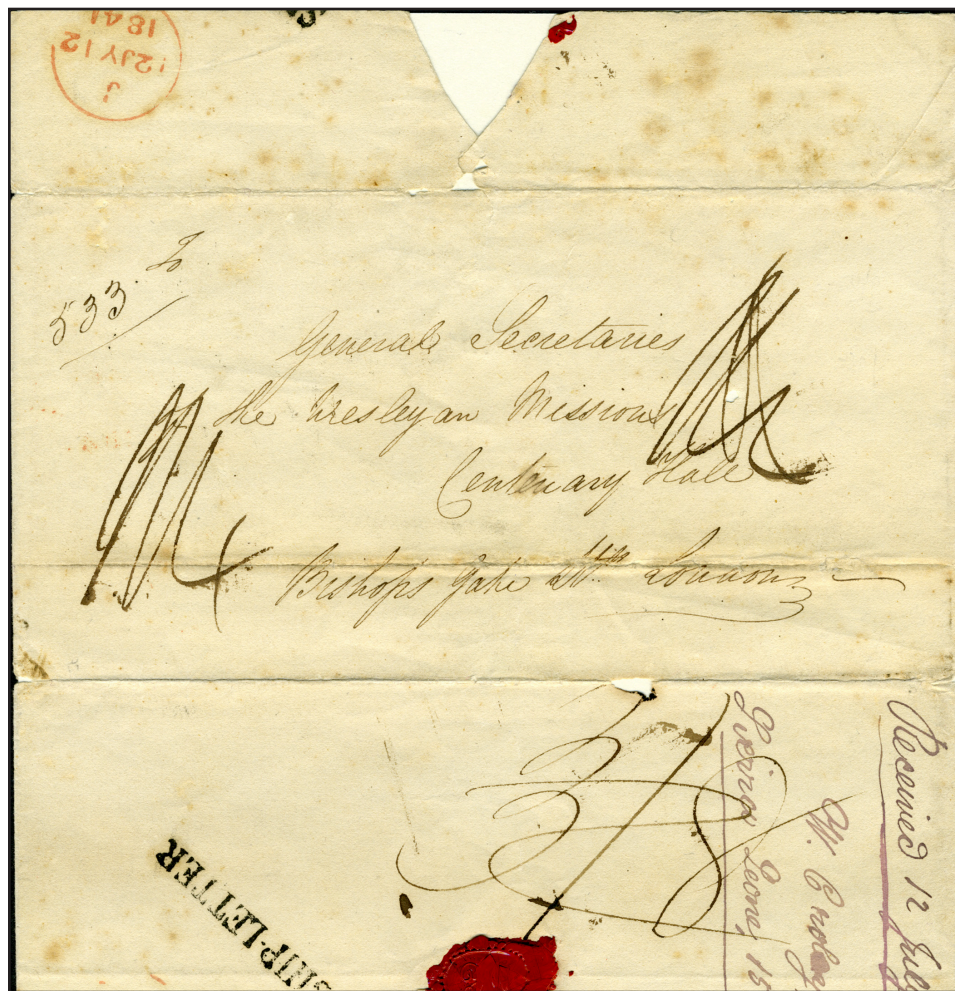 J
12JY12
1841
To
533
General Secretaries
the Wesleyan Missions
Centenary Hall
Bishops gate London
3/8
SHIP-LETTER
Received 12 July
Leone, 15